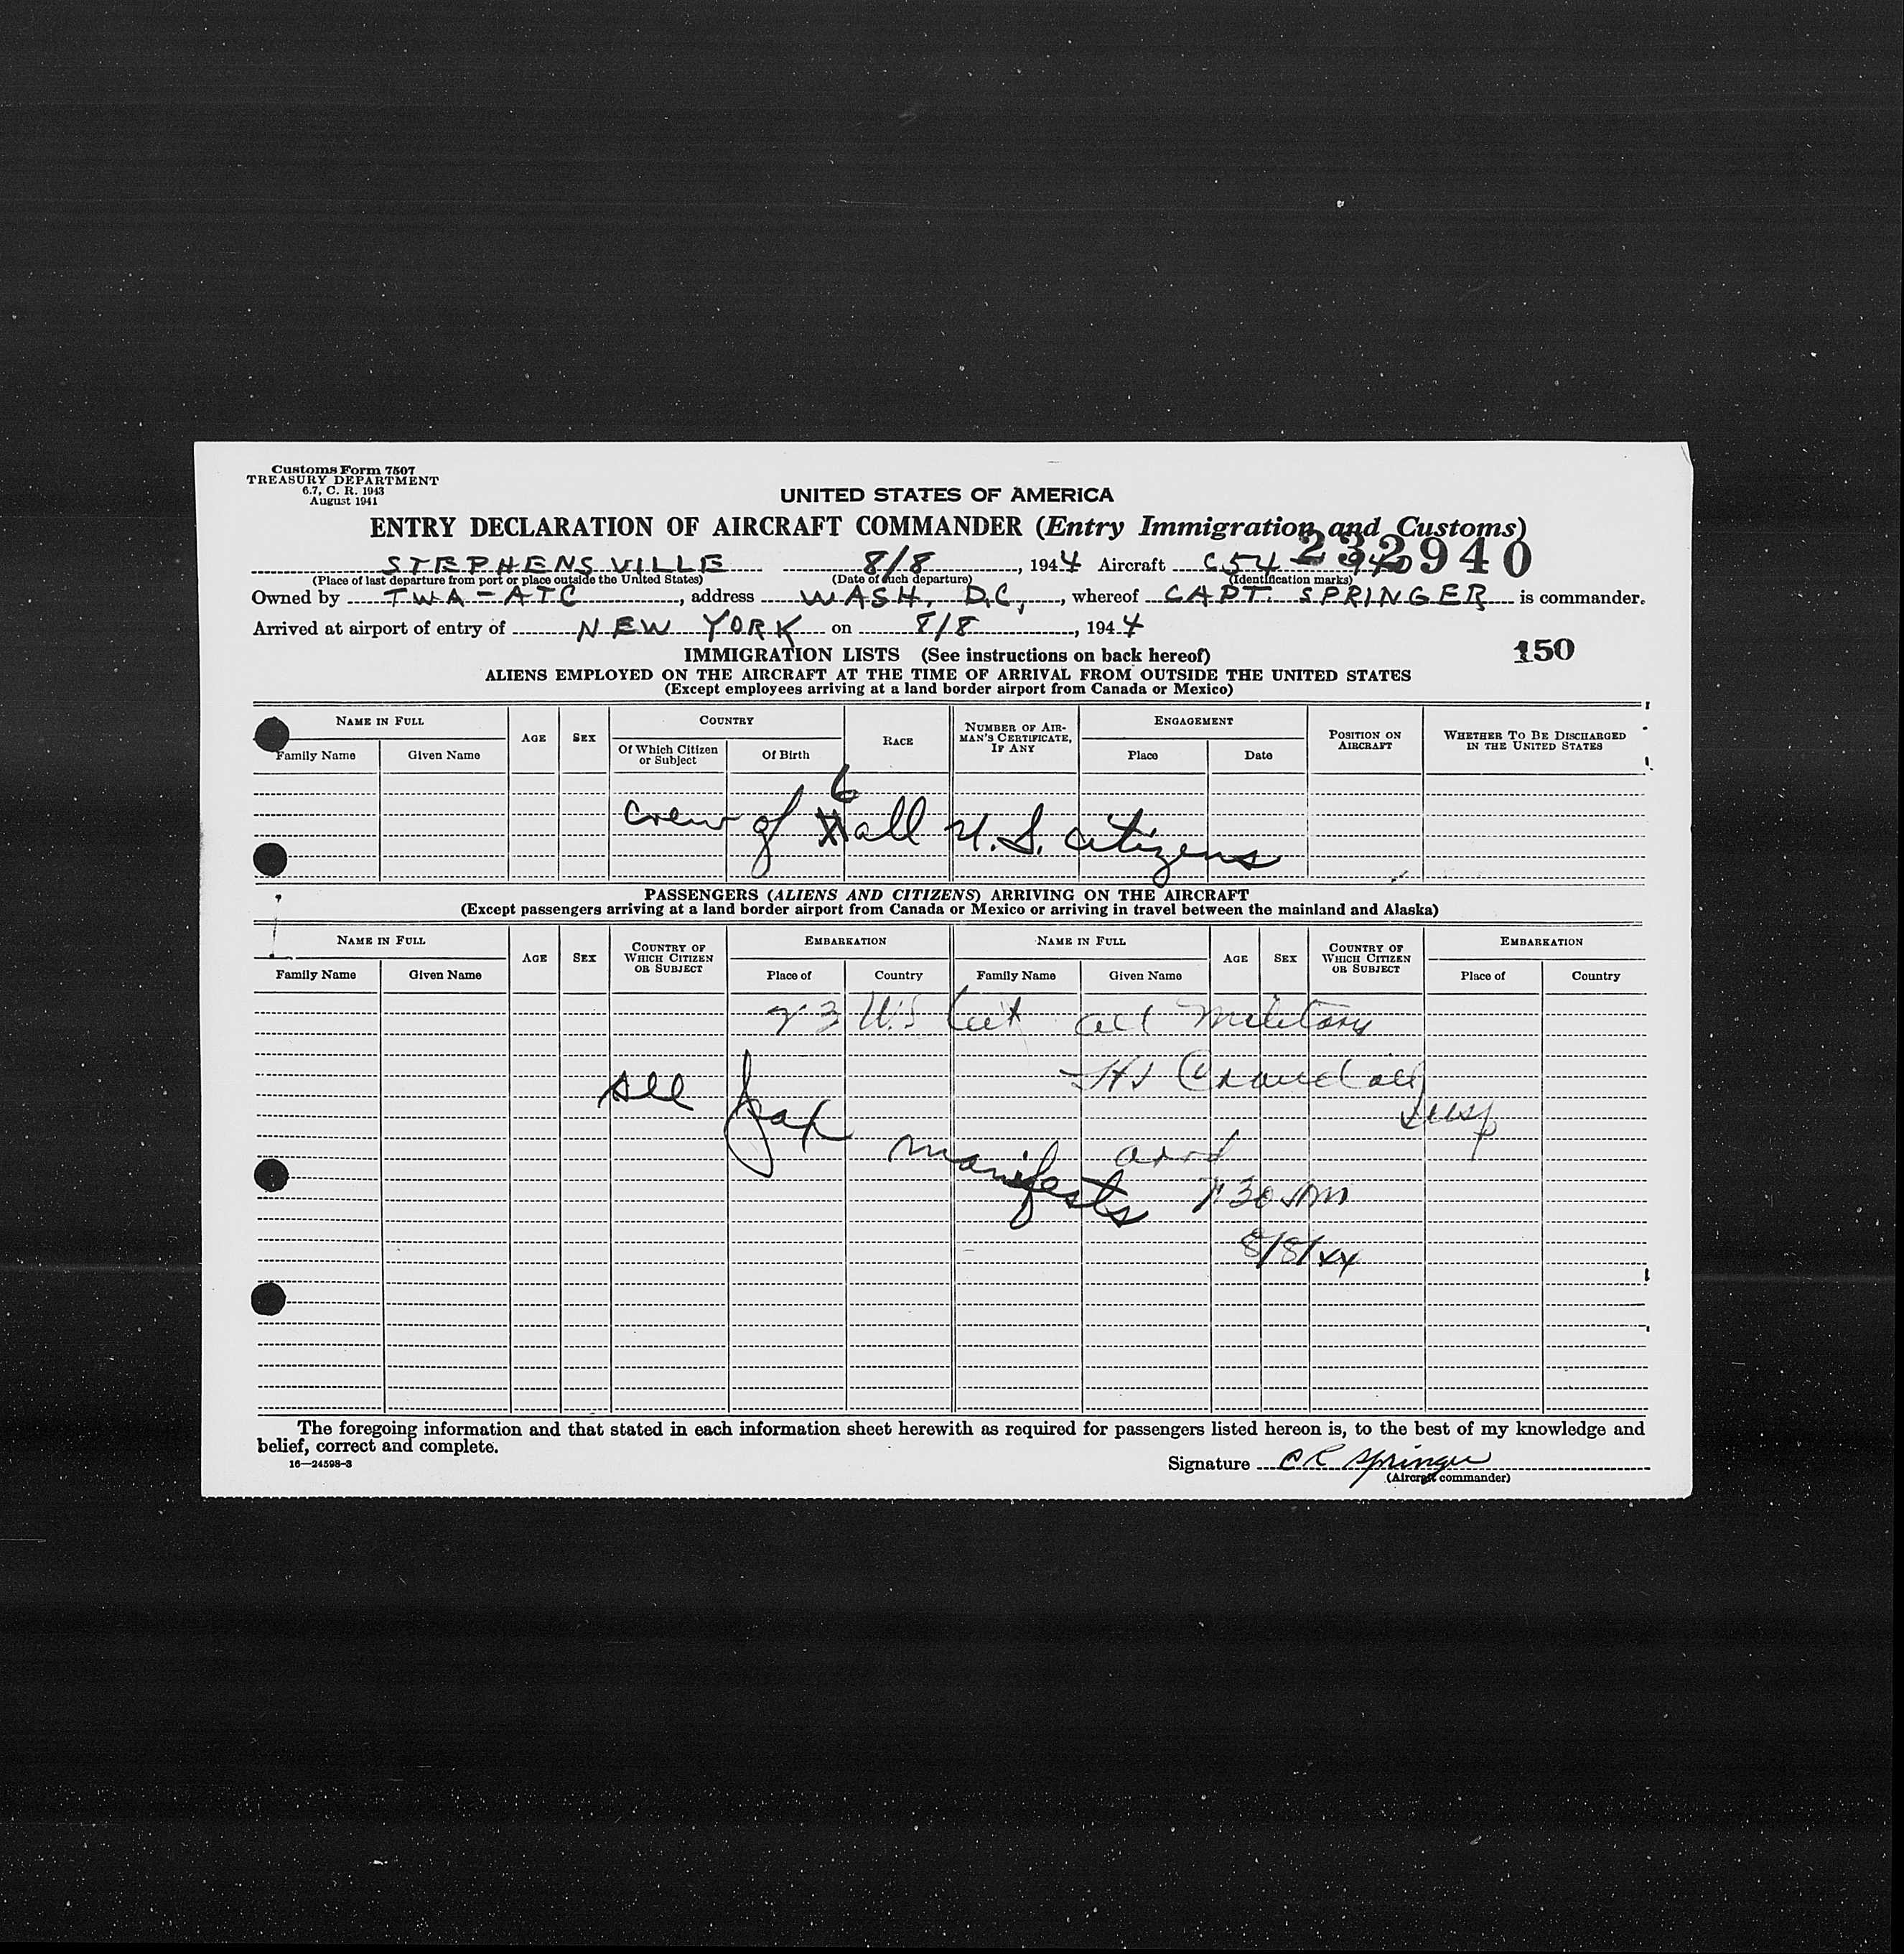 Customs Form 7507
TREASURY DEPARTMENT
6.7, C. R. 1943
August 1941
UNITED STATES OF AMERICA
ENTRY DECLARATION OF AIRCRAFT COMMANDER (Entry Immigration and Customs)
232940
STEPHENSVILLE 8/8, 1944 Aircraft C54 940
(Place of last departure from port or place outside the United States) (Date of such departure) (Identification marks)
Owned by TWA-ATC, address WASH. D.C., whereof CAPT. SPRINGER is commander.
Arrived at airport of entry of NEW YORK on 8/8, 1944
150
IMMIGRATION LISTS (See instructions on back hereof)
ALIENS EMPLOYED ON THE AIRCRAFT AT THE TIME OF ARRIVAL FROM OUTSIDE THE UNITED STATES
(Except employees arriving at a land border airport from Canada or Mexico)
NAME IN FULL AGE SEX COUNTRY RACE NUMBER OF AIRMAN'S CERTIFICATE, IF ANY ENGAGEMENT POSITION ON AIRCRAFT WHETHER TO BE DISCHARGED IN THE UNITED STATES
Family Name Given Name Of Which Citizen or Subject Of Birth Place Date
6
crew of all U.S. citizens
PASSENGERS (ALIENS AND CITIZENS) ARRIVING ON THE AIRCRAFT
(Except passengers arriving at a land border airport from Canada or Mexico or arriving in travel between the mainland and Alaska)
NAME IN FULL AGE SEX COUNTRY OF WHICH CITIZEN OR SUBJECT EMBARKATION NAME IN FULL AGE SEX COUNTRY OF WHICH CITIZEN OR SUBJECT EMBARKATION
Family Name Given Name Place of Country Family Name Given Name Place of Country
23 U.S. Cit all Military
Crandall
Insp
see manifests
arrd
7:30
8/8/44
The foregoing information and that stated in each information sheet herewith as required for passengers listed hereon is, to the best of my knowledge and
belief, correct and complete.
16—24598-3
Signature C R Springer
(Aircraft commander)